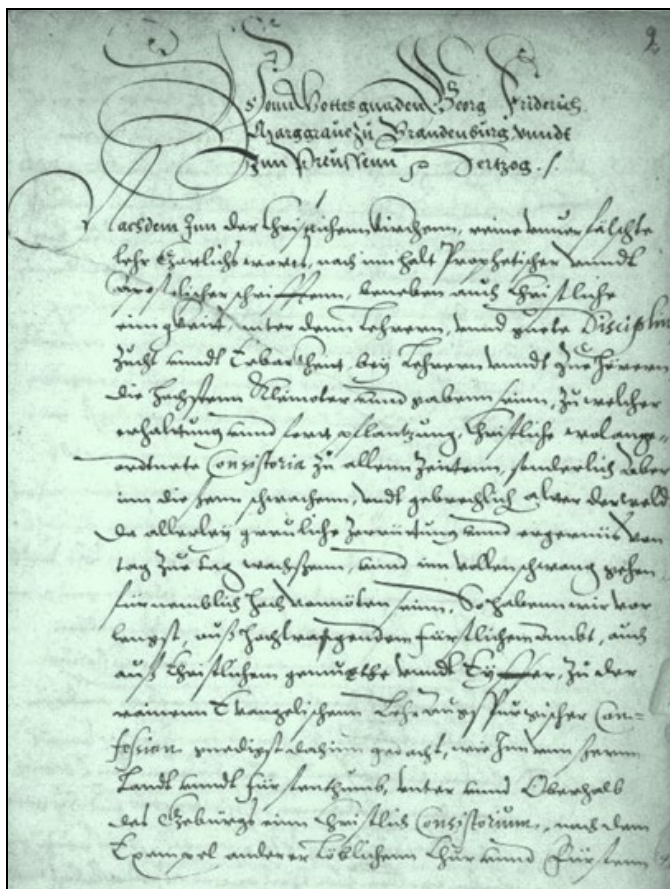 2
Vonn Gottes gnaden Georg Friderich
Marggraue zu Brandenburg vnndt
Inn Preussenn p Hertzog /.
Nachdem Inn der Christlichenn Kirchenn, reine vnuerfälschte
lehr Göttlichs worts, nach innhalt Prophetischer vnndt
Apostolischer schrifftenn, beneben auch Christliche
einigkeit, vnter denn Lehrern, vnnd guete Disciplin
Zucht vnndt Erbarkheit, bey Lehrern vnndt Zuehörern
die höchstenn Kleinoter vnnd gabenn seinn, Zu welcher
erhaltung vnnd fort pflantzung, Christliche wolange=
ordtnete Consistoria Zu allenn Zeitenn, sonderlich aber
inn die senn schwachenn, vndt gebrechlich alter der weld
da allerley greuliche Zerrüttung vnnd ergernüs von
tag Zu tag wachssenn, vnnd inn vollen schwang gehen
fürnemblich hoch vonnöten seinn, So habenn wir vor
lengst, auß hochtragendem fürstlichem ambt, auch
auß Christlichem gemüethe vnndt Eyffer, Zu der
reinenn Evangelischenn Lehr Augspurgischer Con=
fession gnedigst dahinn gedacht, wie Inn vnserm
Landt vnndt fürstenthumb, vnter vnnd Oberhalb
des Geburgs einn Christlich Consistorium, nach dem
Exempel anderer Löblichenn Chur vnnd Fürstenn